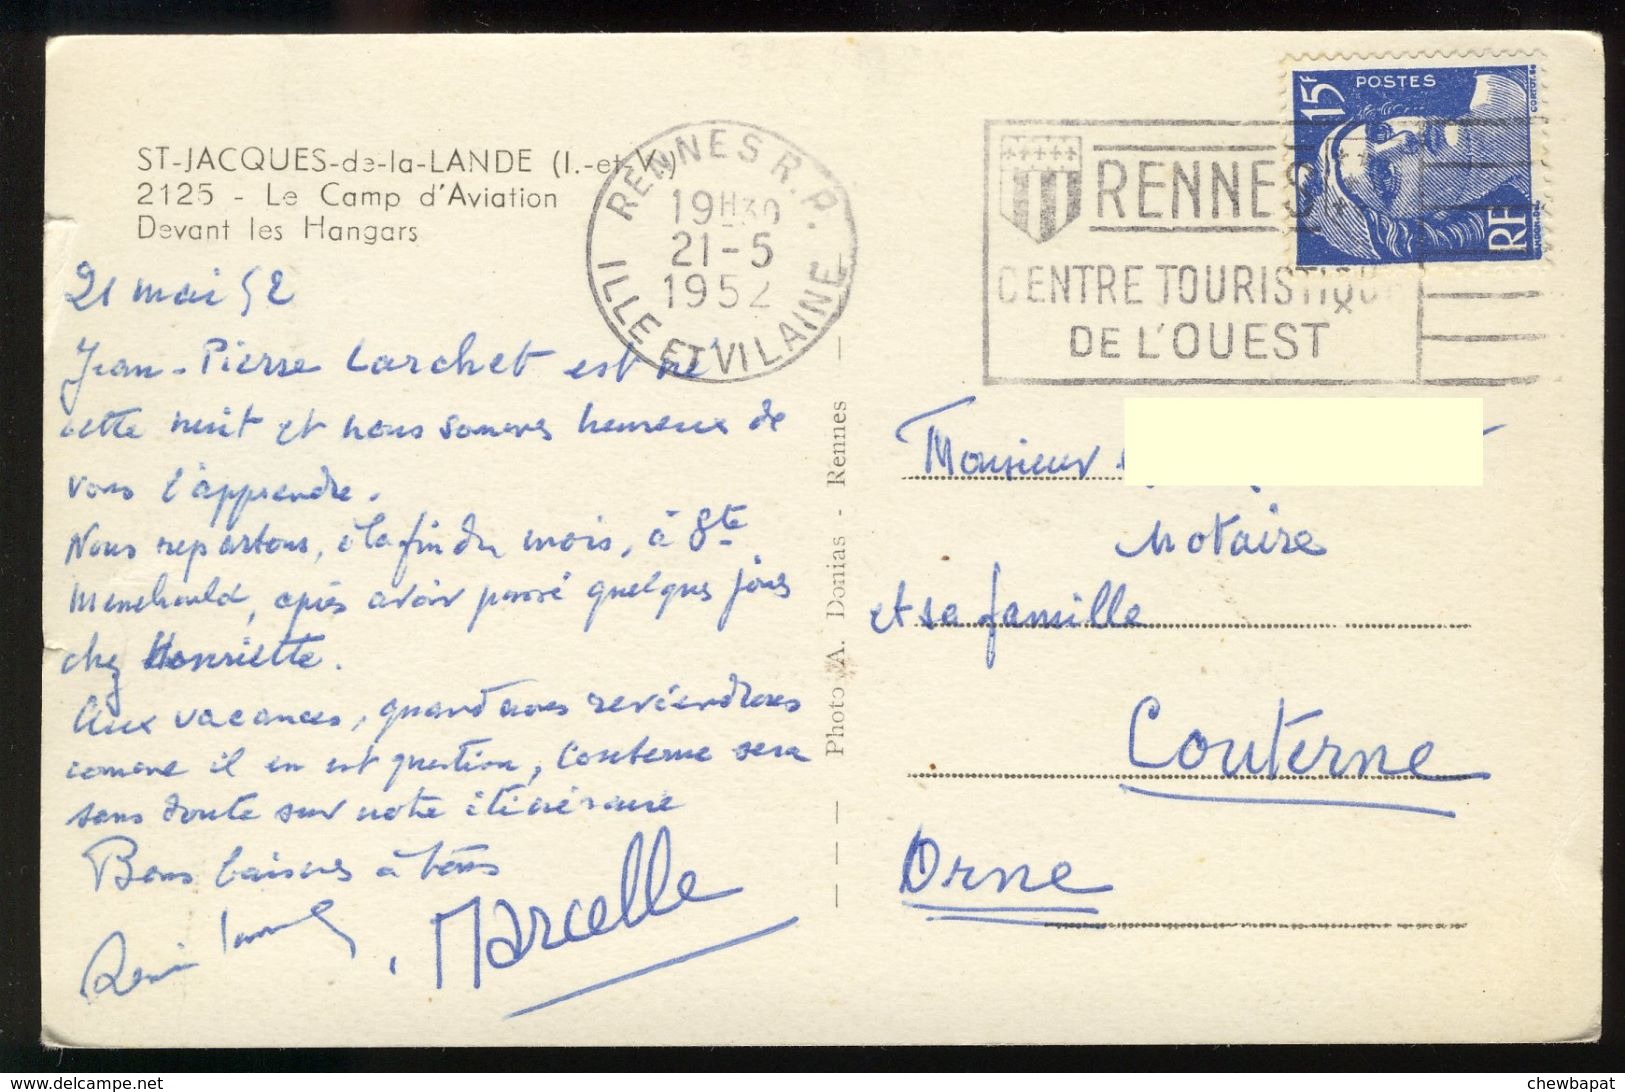 ST-JACQUES-de-la-LANDE (I.-et-V.)
2125 - Le Camp d'Aviation
Devant les Hangars
RENNES R.P.
19H30
21-5
1952
ILLE ET VILAINE
RENNES
CENTRE TOURISTIQUE
DE L'OUEST
15F
POSTES
RF
21 mai 52
Jean-Pierre Larchet est né
cette nuit et nous sommes heureux de
vous l'apprendre.
Nous repartons, à la fin du mois, à Ste
Menehould, après avoir passé quelques jours
chez Henriette.
Aux vacances, quand nous reviendrons
comme il en est question, Couterne sera
sans doute sur notre itinéraire
Bons baisers à tous
Marcelle
Photo A. Donias - Rennes
Monsieur
Notaire
et sa famille
Couterne
Orne
chewbapat
delcampe.net